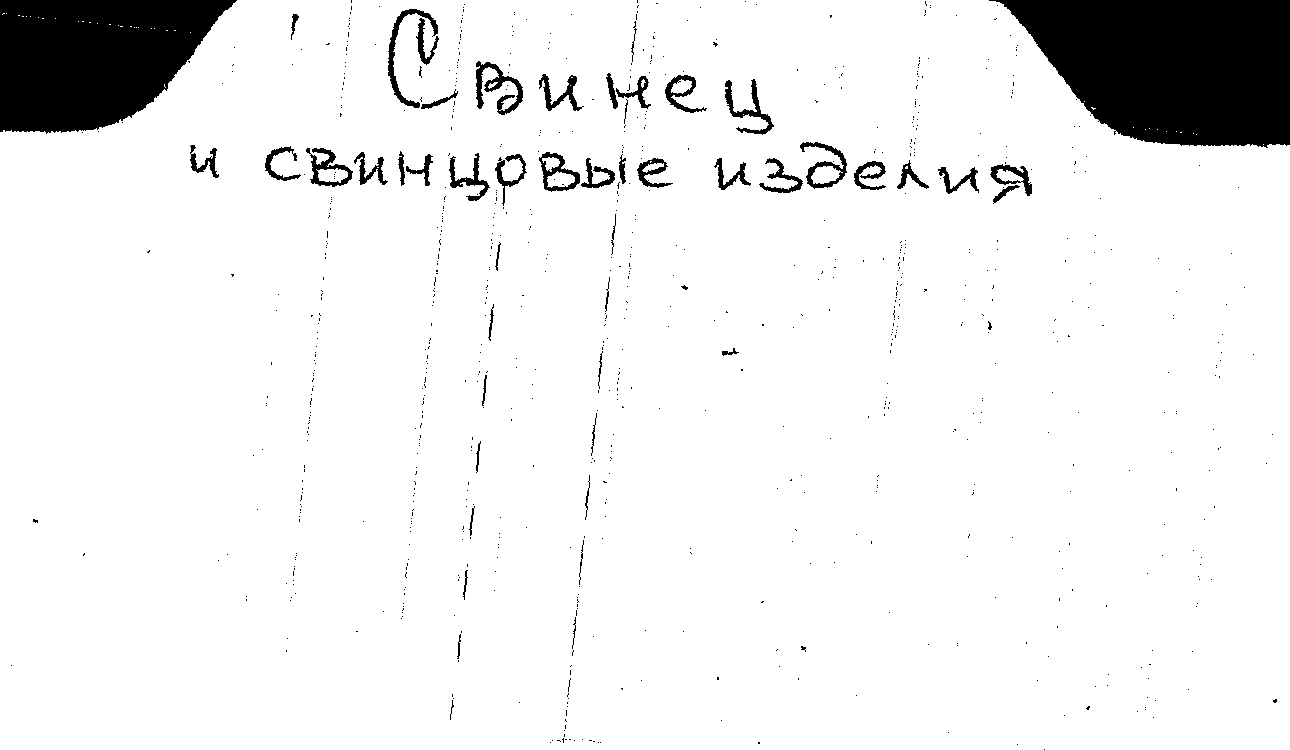 Свинец
и свинцовые изделия